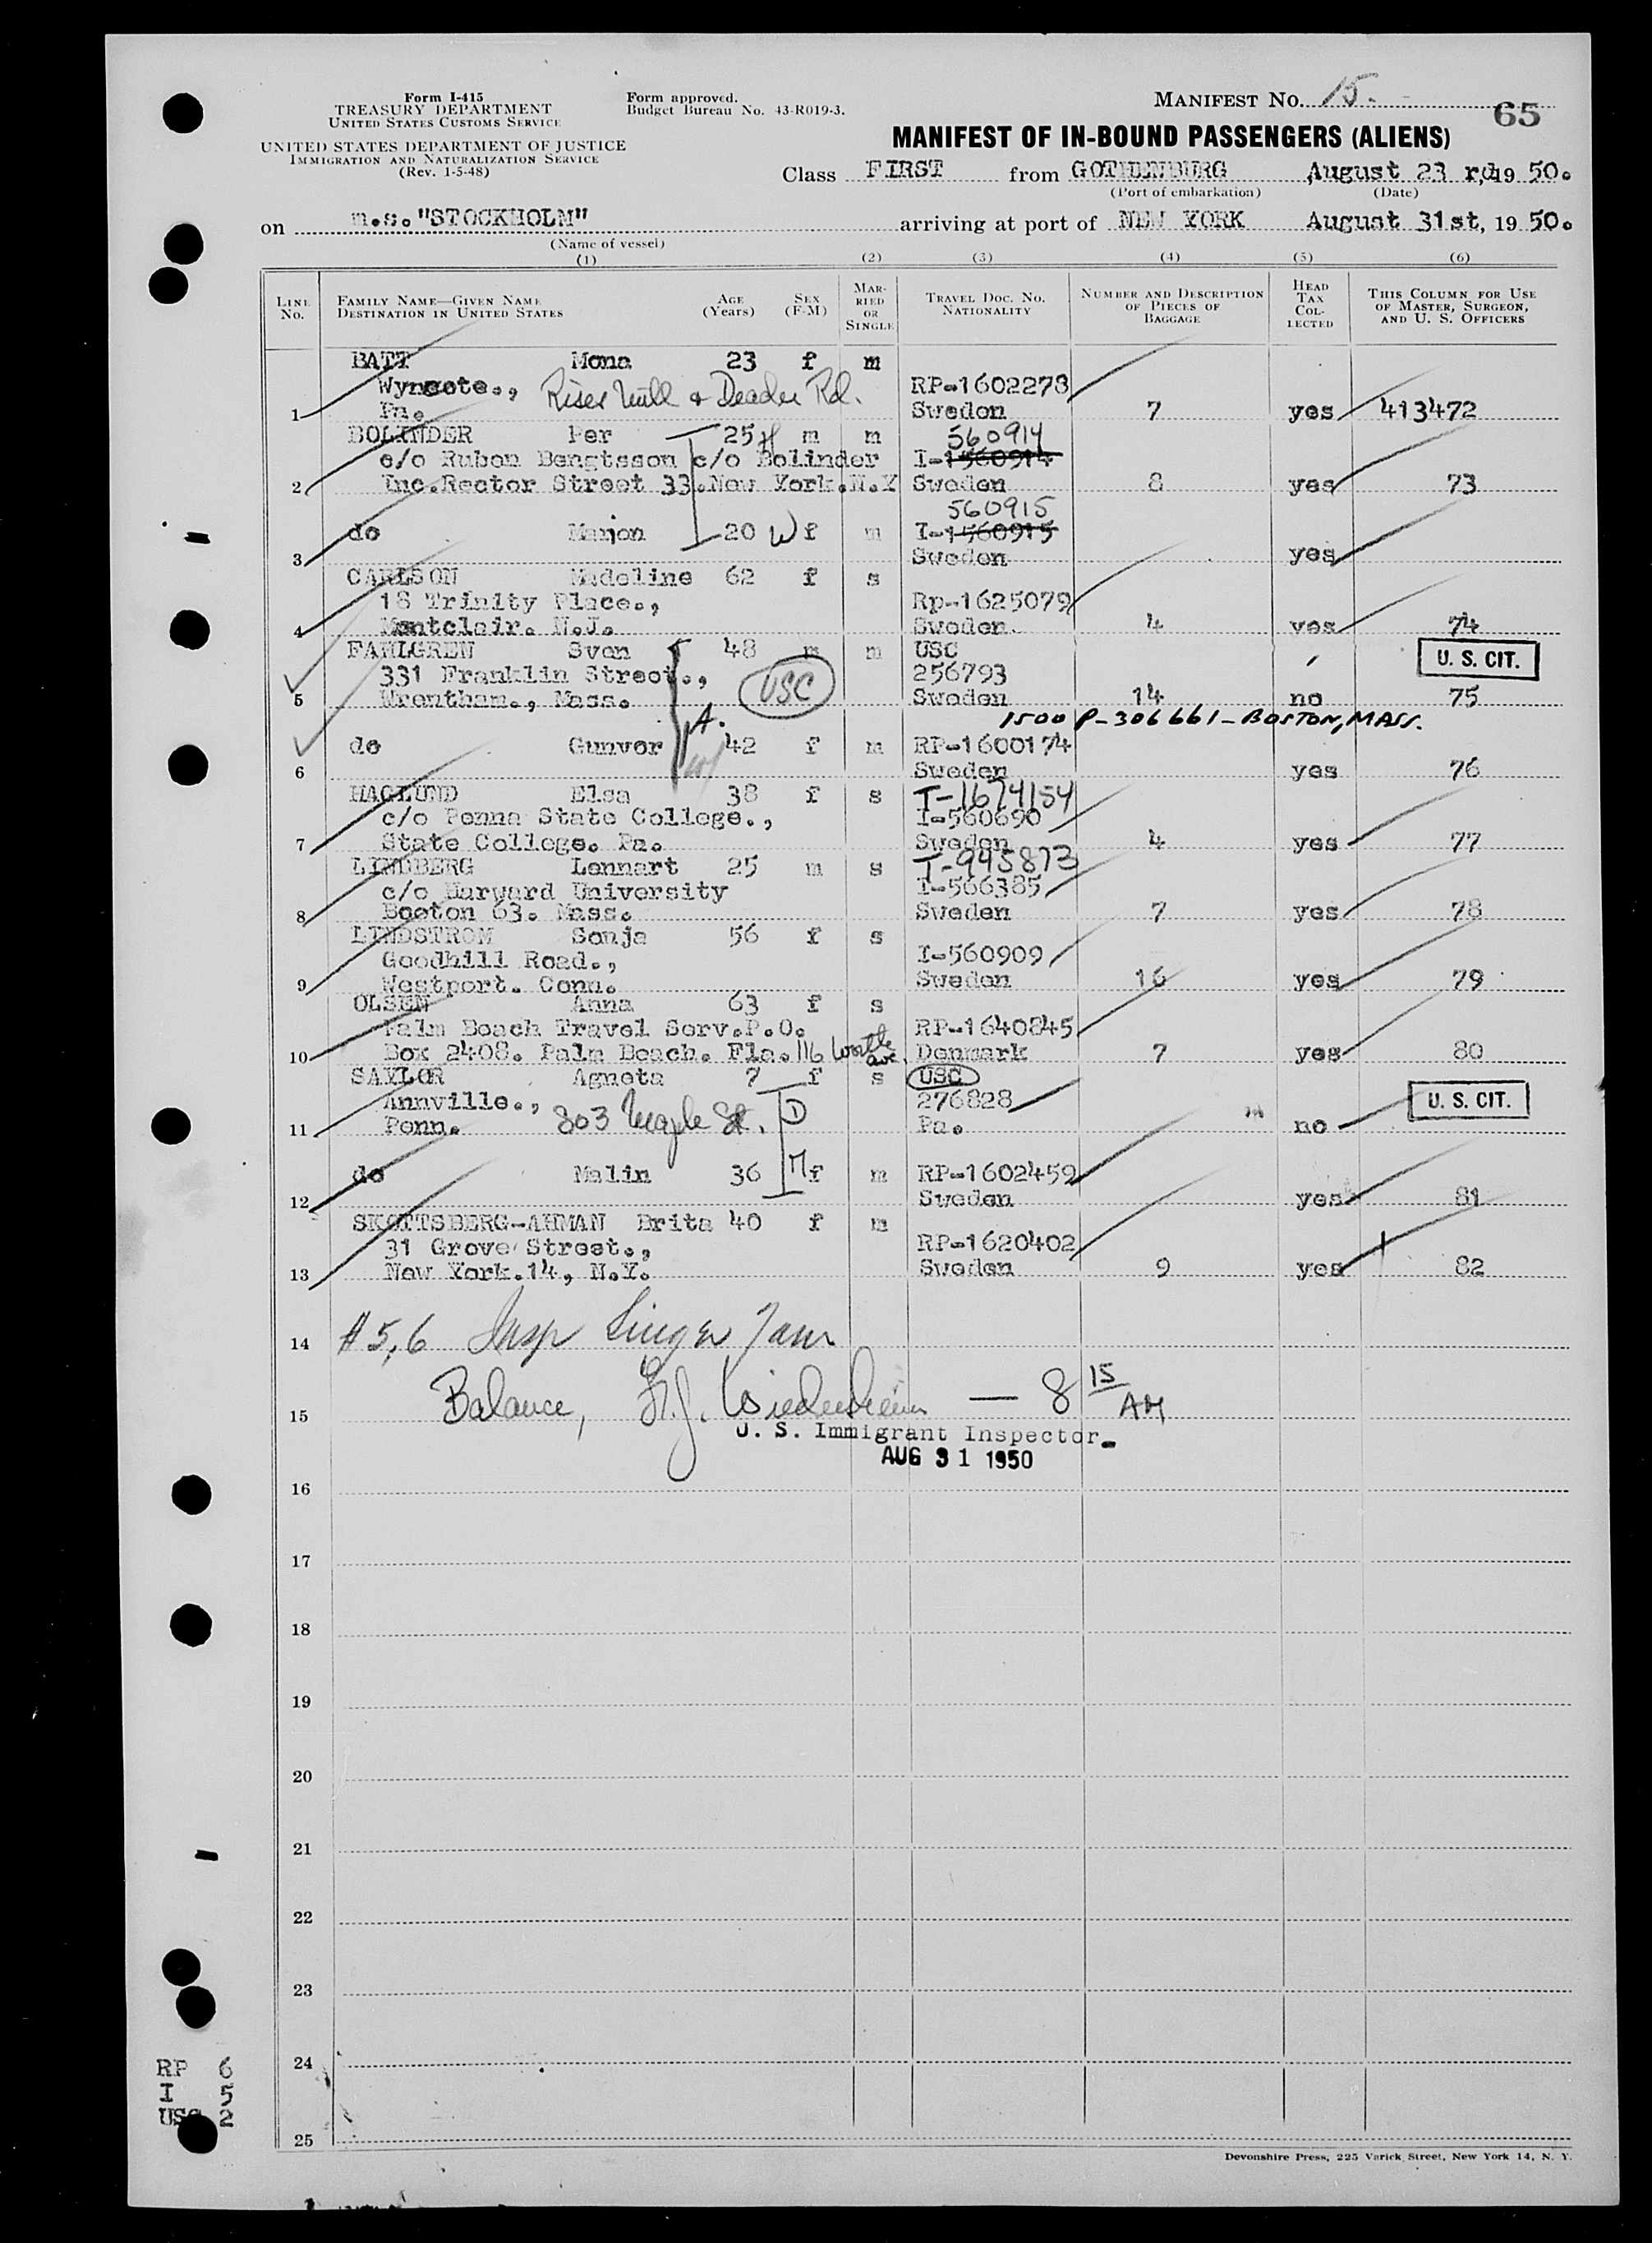 Form I-415
TREASURY DEPARTMENT
UNITED STATES CUSTOMS SERVICE
UNITED STATES DEPARTMENT OF JUSTICE
IMMIGRATION AND NATURALIZATION SERVICE
(Rev. 1-5-48)
Form approved.
Budget Bureau No. 43-R019-3.
MANIFEST No. 15.
65
MANIFEST OF IN-BOUND PASSENGERS (ALIENS)
Class FIRST from GOTHENBURG August 23 rd, 19 50.
(Port of embarkation) (Date)
on m.s."STOCKHOLM" arriving at port of NEW YORK August 31st, 19 50.
(Name of vessel)
(1) (2) (3) (4) (5) (6)
LINE No. FAMILY NAME—GIVEN NAME DESTINATION IN UNITED STATES AGE (Years) SEX (F-M) MARRIED OR SINGLE TRAVEL DOC. NO. NATIONALITY NUMBER AND DESCRIPTION OF PIECES OF BAGGAGE HEAD TAX COLLECTED THIS COLUMN FOR USE OF MASTER, SURGEON, AND U. S. OFFICERS
BATT Mona 23 f m
Wyncote., RP-1602278
1 Pa. Sweden 7 yes 413472
BOLINDER Per 25 H m m 560914
c/o Ruben Bengtsson c/o Bolinder I-1560914
2 Inc.Rector Street 33.New York.N.Y Sweden 8 yes 73
560915
do Marjon 20 W f m I-1560915
3 Sweden yes
CARLSON Madeline 62 f s
18 Trinity Place., Rp-1625079
4 Montclair. N.J. Sweden 4 yes 74
FAHLGREN Sven 48 m m USC U. S. CIT.
331 Franklin Street., USC 256793
5 Wrentham., Mass. Sweden 14 no 75
A. 1500 P-306661-BOSTON, MASS.
do Gunvor W 42 f m RP-1600174
6 Sweden yes 76
HAGLUND Elsa 38 f s T-1674154
c/o Penna State College., I-560690
7 State College. Pa. Sweden 4 yes 77
LINDBERG Lennart 25 m s T-945873
c/o Harward University I-566385
8 Booton 63. Mass. Sweden 7 yes 78
LINDSTROM Sonja 56 f s
Goodhill Road., I-560909
9 Westport. Conn. Sweden 16 yes 79
OLSEN Anna 63 f s
Palm Beach Travel Serv.P.O. RP-1640845
10 Box 2408. Palm Beach. Fla. 116 Worth ave. Denmark 7 yes 80
SAYLOR Agneta 7 f s USC
Annville., D 276828 U. S. CIT.
11 Penn. 803 Maple St. Pa. no
do Malin 36 M f m RP-1602459
12 Sweden yes 81
SKOTTSBERG-AHMAN Brita 40 f m
31 Grove Street., RP-1620402
13 New York.14, N.Y. Sweden 9 yes 82
14 #5,6 Insp
15 Balance, — 8 15 AM
U. S. Immigrant Inspector
AUG 31 1950
16
17
18
19
20
21
22
23
24
25
RP 6
I 5
USC 2
Devonshire Press, 225 Varick Street, New York 14, N. Y.